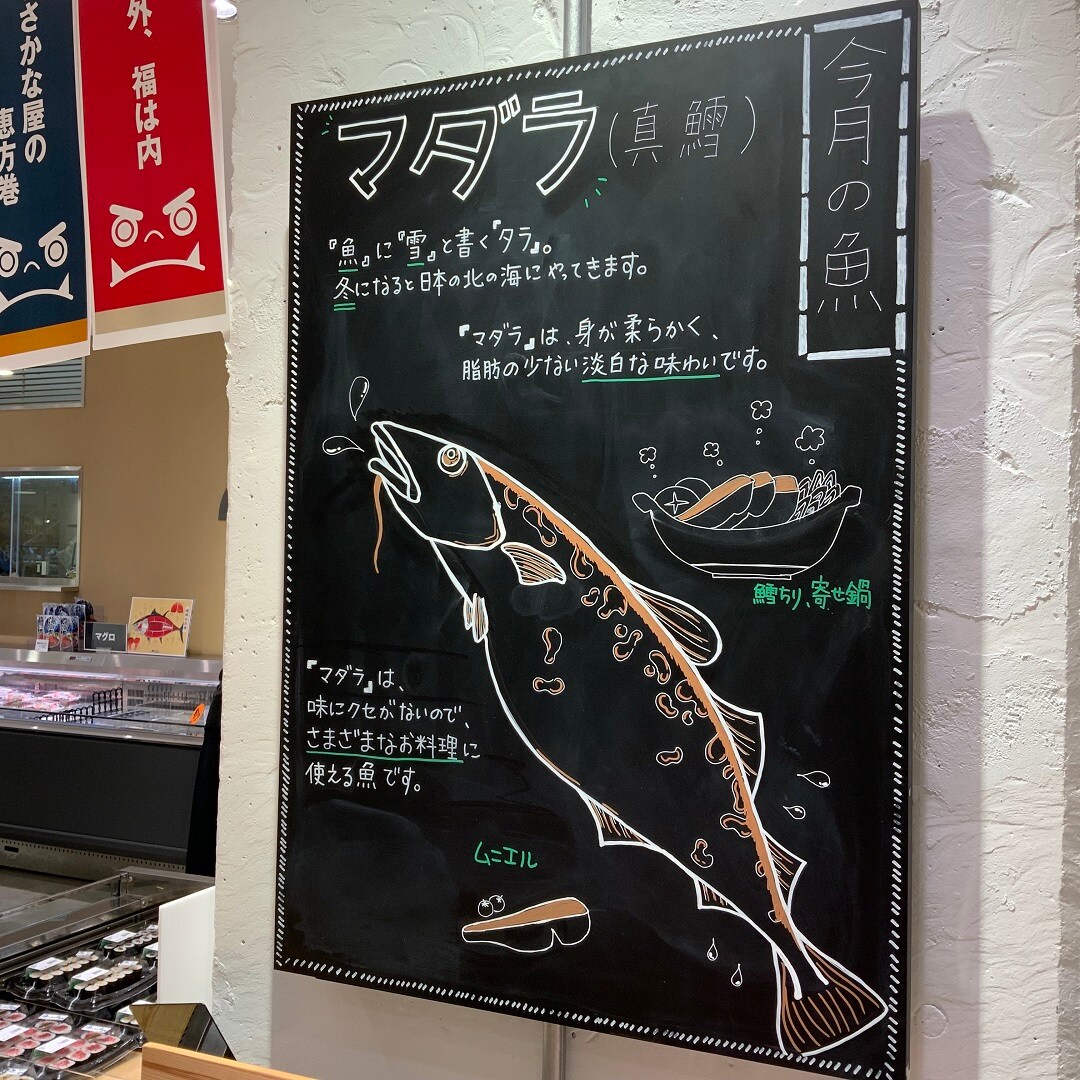 今月の魚
マダラ(真鱈)
『魚』に『雪』と書く『タラ』。
冬になると日本の北の海にやってきます。
『マダラ』は、身が柔らかく、
脂肪の少ない淡白な味わいです。
鱈ちり、寄せ鍋
『マダラ』は、
味にクセがないので、
さまざまなお料理に
使える魚です。
ムニエル
さかな屋の
恵方巻
外、福は内
マグロ